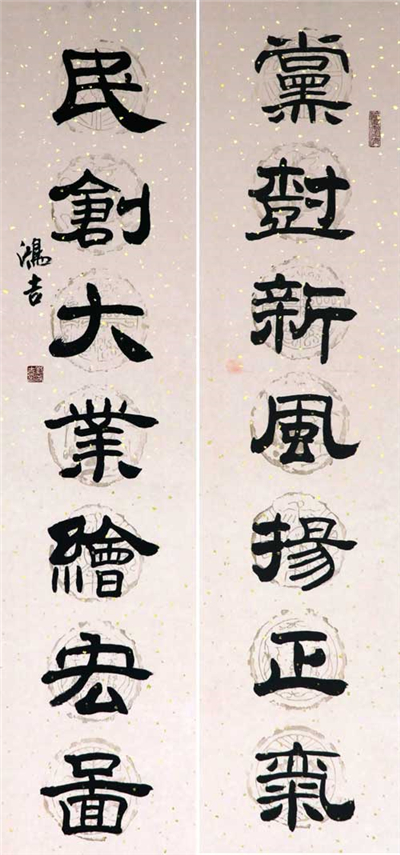 黨樹新風揚正氣
民創大業繪宏圖
鴻吉